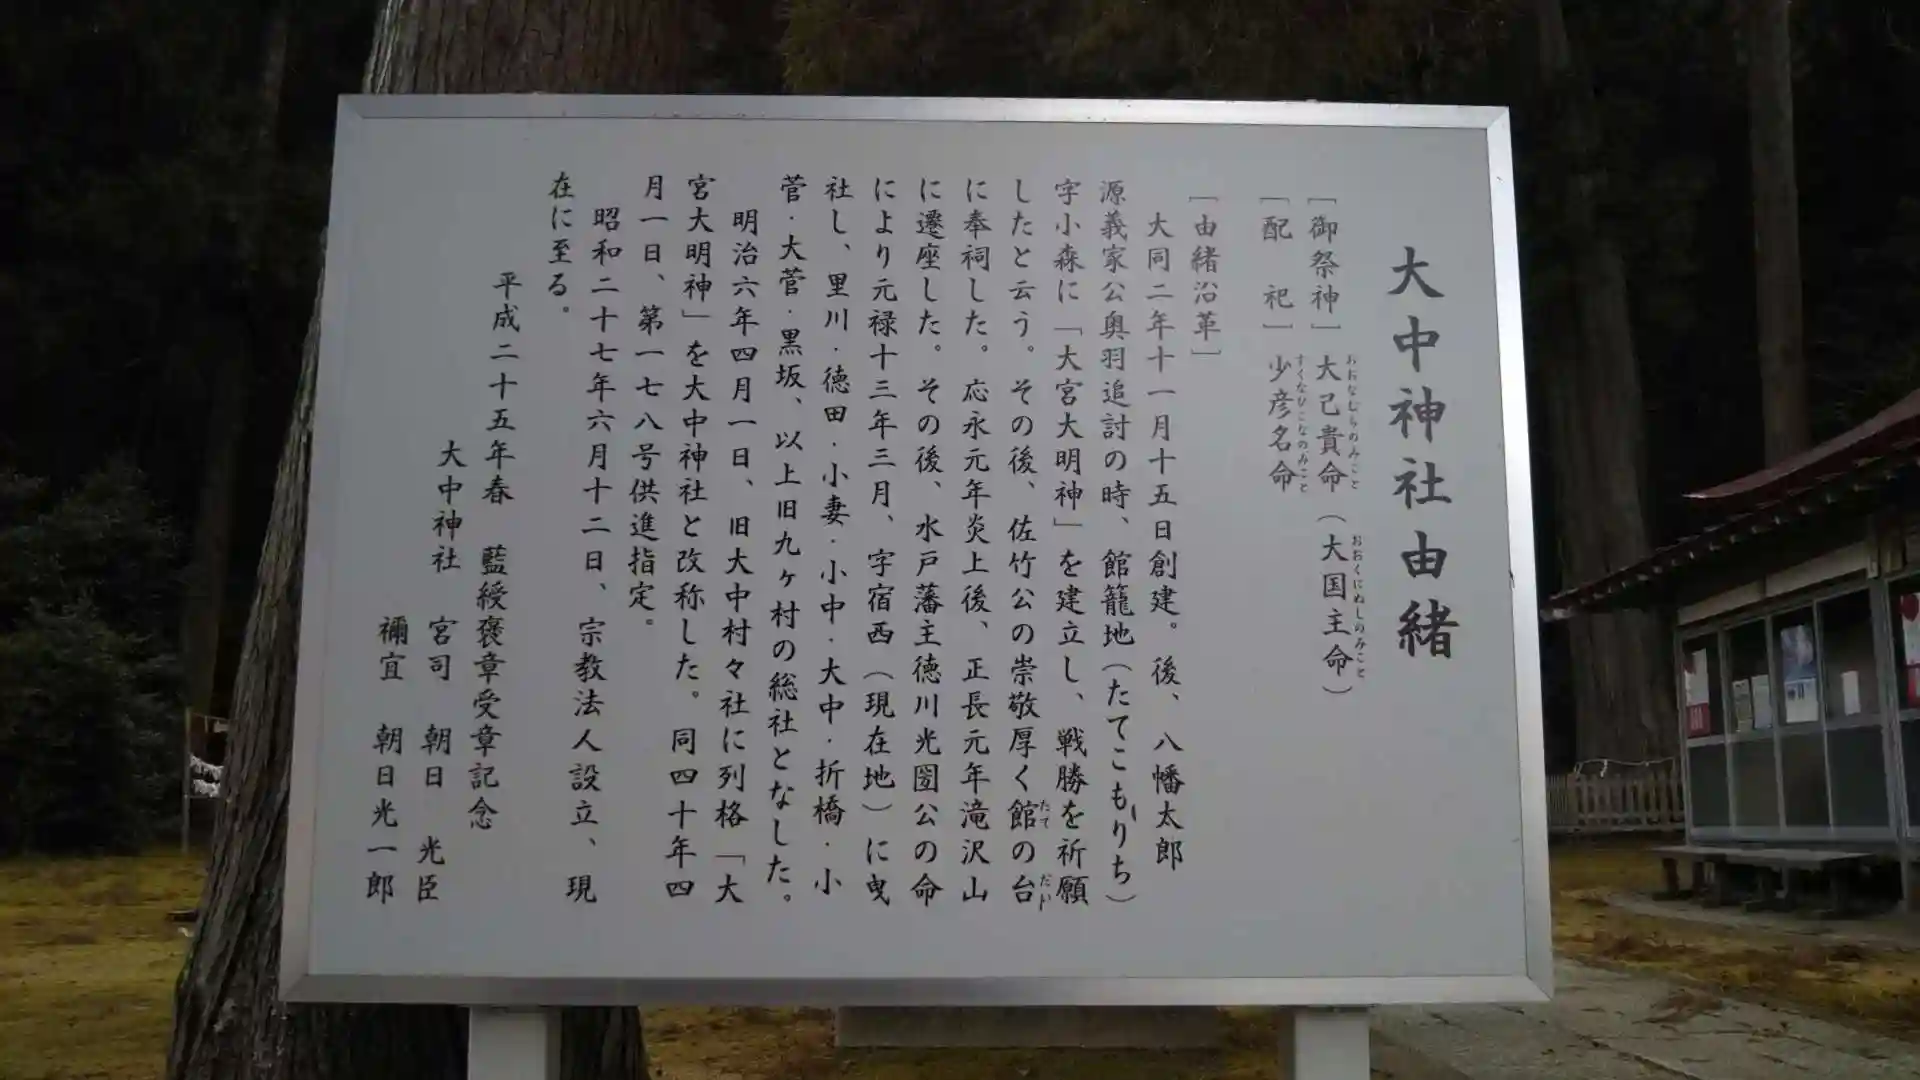 大中神社由緒
[御祭神] 大己貴命(大国主命)
おおなむちのみこと
おおくにぬしのみこと
[配 祀] 少彦名命
すくなひこなのみこと
[由緒沿革]
大同二年十一月十五日創建。後、八幡太郎
源義家公奥羽追討の時、館籠地(たてこもりち)
字小森に「大宮大明神」を建立し、戦勝を祈願
したと云う。その後、佐竹公の崇敬厚く館の台
たて だい
に奉祠した。応永元年炎上後、正長元年滝沢山
に遷座した。その後、水戸藩主徳川光圀公の命
により元禄十三年三月、字宿西(現在地)に曳
社し、里川・徳田・小妻・小中・大中・折橋・小
菅・大菅・黒坂、以上旧九ヶ村の総社となした。
明治六年四月一日、旧大中村々社に列格「大
宮大明神」を大中神社と改称した。同四十年四
月一日、第一七八号供進指定。
昭和二十七年六月十二日、宗教法人設立、現
在に至る。
平成二十五年春 藍綬褒章受章記念
大中神社 宮司 朝日 光臣
禰宜 朝日光一郎